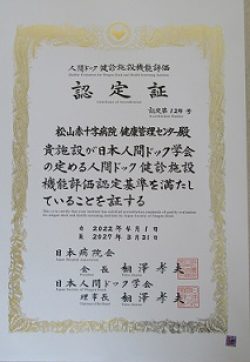 人間ドック健診施設機能評価
認定証
認定第12号
松山赤十字病院 健康管理センター殿
貴施設が日本人間ドック学会
の定める人間ドック健診施設
機能評価認定基準を満たし
ていることを証する
自 2022年4月1日
至 2027年3月31日
日本病院会
会長 相澤孝夫
日本人間ドック学会
理事長 相澤孝夫